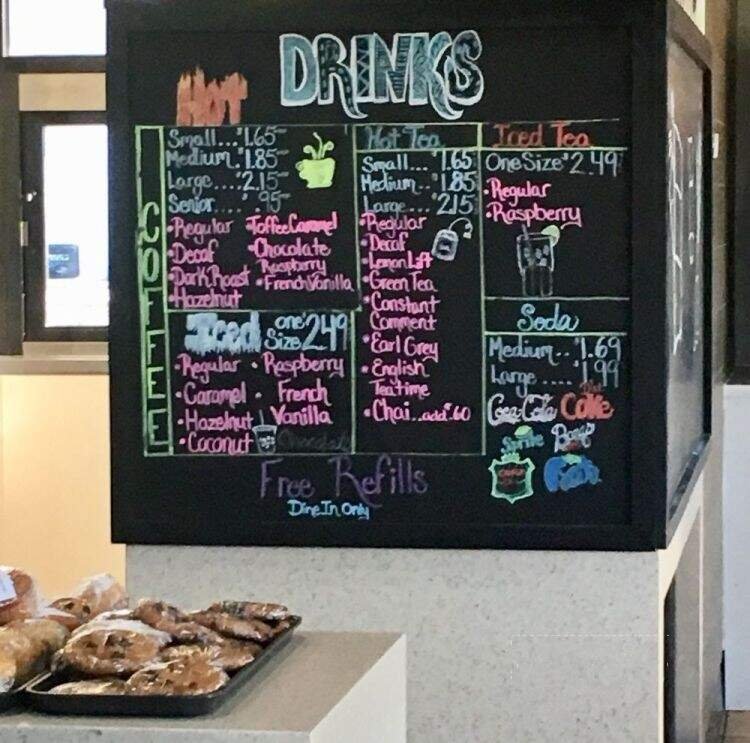 DRINKS
HOT
COFFEE
Small...$1.65
Medium.$1.85
Large....$2.15
Senior....$.95
•Regular
•Decaf
•Dark Roast
•Hazelnut
•Toffee Caramel
•Chocolate
Raspberry
•French Vanilla
Iced one Size $2.49
•Regular
•Caramel
•Hazelnut
•Coconut
•Raspberry
•French
Vanilla
Hot Tea
Small...$1.65
Medium..$1.85
Large....2.15
•Regular
•Decaf
•Lemon Lift
•Green Tea
•Constant
Comment
•Earl Grey
•English
Teatime
•Chai...add $.60
Iced Tea
One Size $2.49
•Regular
•Raspberry
Soda
Medium..$1.69
Large.....$1.99
Coca-Cola Diet Coke
Sprite
Free Refills
Dine In Only